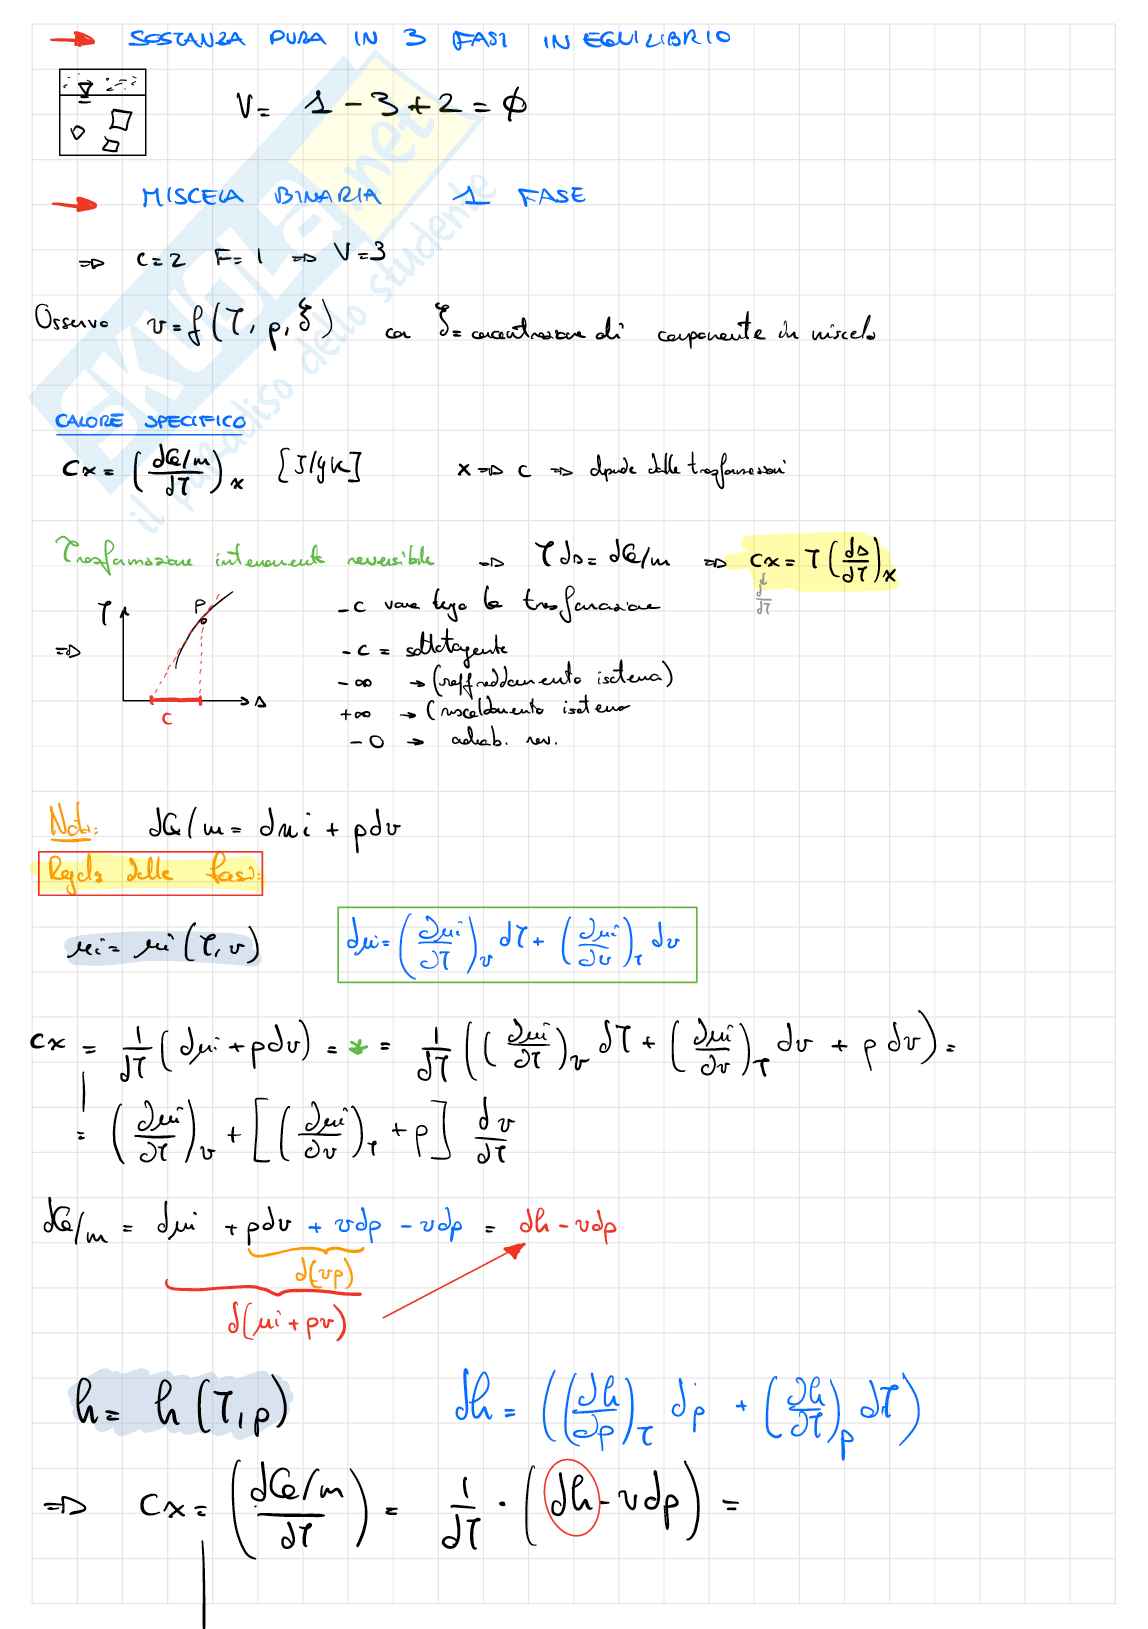 → SOSTANZA PURA IN 3 FASI IN EQUILIBRIO
V = 1 - 3 + 2 = ϕ
→ MISCELA BINARIA 1 FASE
⇒ C=2 F=1 ⇒ V=3
Osservo v = f(T, p, ξ) con ξ = concentrazione di componente in miscela
CALORE SPECIFICO
Cx = (đQ/m / dT)x [J/gK] x ⇒ C ⇒ dipende dalle trasformazioni
Trasformazione internamente reversibile ⇒ Tds = đQ/m ⇒ Cx = T (ds/dT)x
T P ⇒ s C
- C varia lungo la trasformazione
- C = sottotangente
- ∞ → (raffreddamento isoterma)
+ ∞ → (riscaldamento isoterno
- 0 → adiab. rev.
Nota: đQ/m = dui + pdv
Regola delle fasi:
ui = ui (T, v) dui = (∂ui/∂T)v dT + (∂ui/∂v)T dv
Cx = 1/dT (dui + pdv) = * = 1/dT ((∂ui/∂T)v dT + (∂ui/∂v)T dv + p dv) =
= (∂ui/∂T)v + [(∂ui/∂v)T + p] dv/dT
đQ/m = dui + pdv + vdp - vdp = dh - vdp
d(vp)
d(ui + pv)
h = h (T, p) dh = ((∂h/∂p)T dp + (∂h/∂T)p dT)
⇒ Cx = (đQ/m / dT) = 1/dT · (dh - vdp) =
SKUOLA.net
il paradiso dello studente